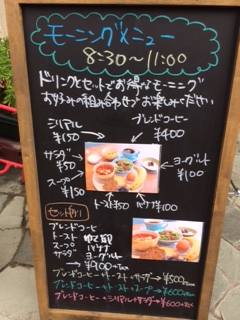 モーニングメニュー
8:30～11:00
ドリンクとセットでお得なモーニング
お好みの組み合わせでお楽しみください
シリアル
¥150
ブレンドコーヒー
¥400
サラダ
¥50
ヨーグルト
¥100
スープ
¥150
トースト¥50
バナナ¥100
セット例
ブレンドコーヒー
トースト ゆで卵
スープ バナナ
サラダ ヨーグルト
→ ¥900+tax
ブレンドコーヒー+トースト+サラダ→¥500+tax
ブレンドコーヒー+トースト+スープ→¥600+tax
ブレンドコーヒー+シリアル+サラダ→¥600+tax